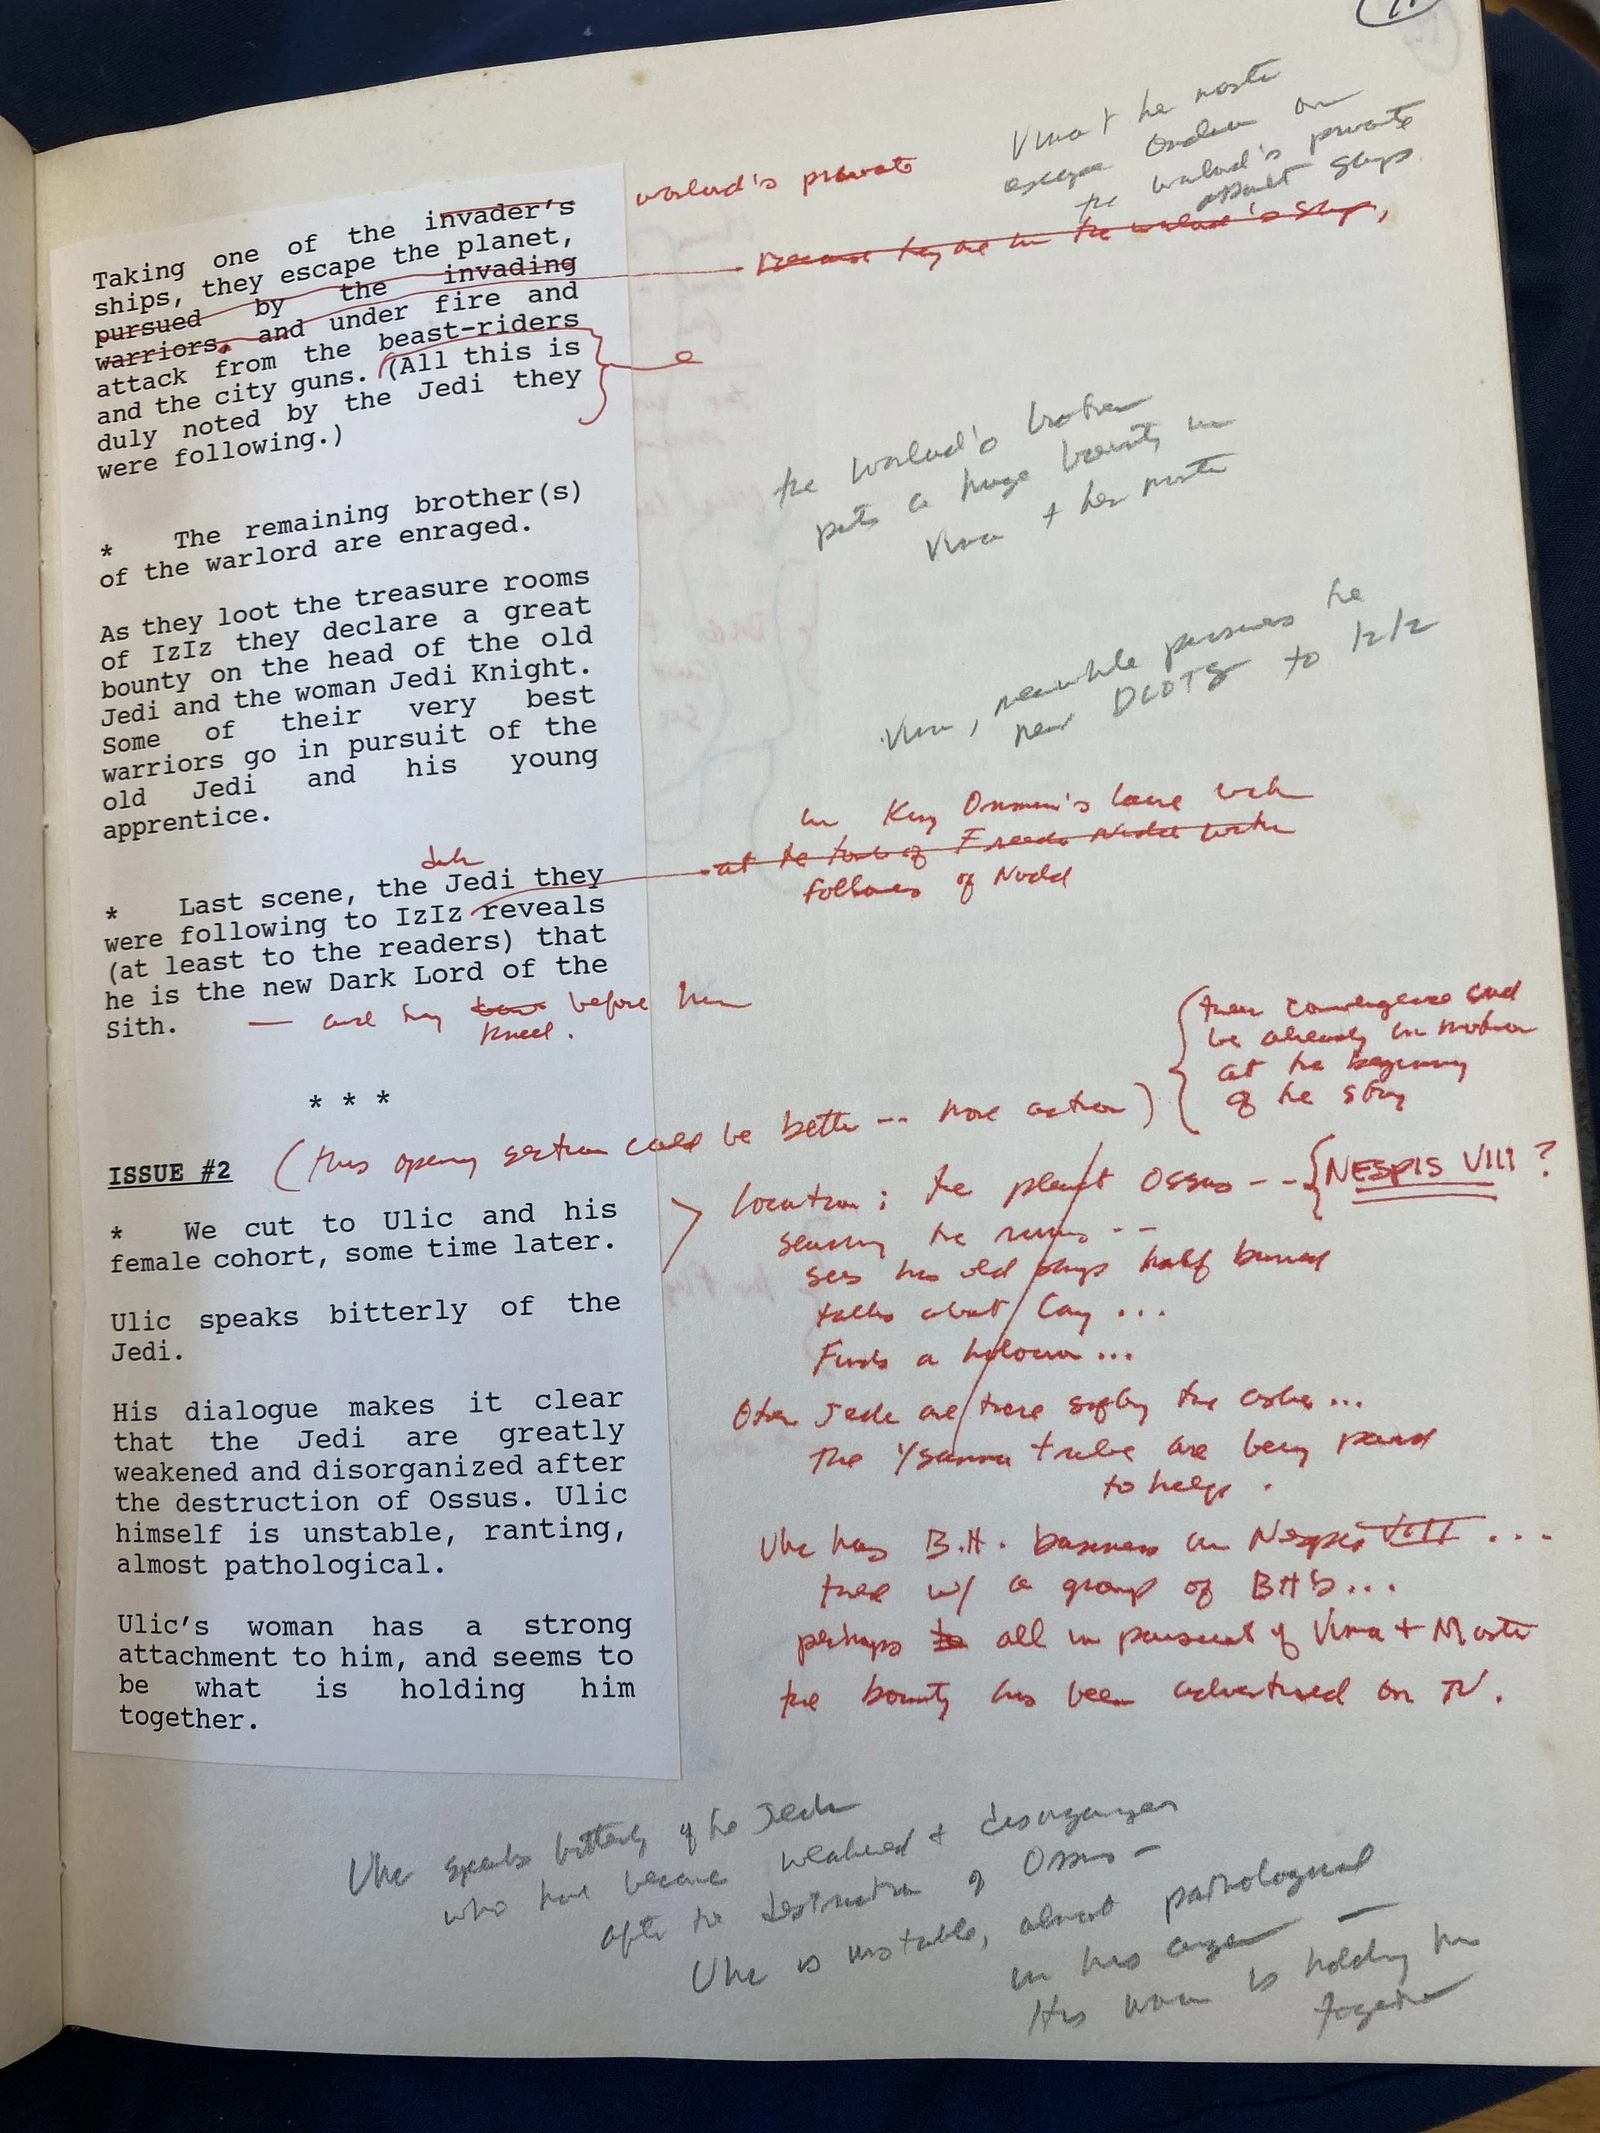 Vima + her master
escape Onderon on
the warlord's private
assault ships
warlord's private
Taking one of the invader's
ships, they escape the planet,
pursued by the invading
warriors, and under fire and
attack from the beast-riders
and the city guns. (All this is
duly noted by the Jedi they
were following.)
because they are in the warlord's ship,
the warlord's brother
puts a huge bounty on
Vima + her master
* The remaining brother(s)
of the warlord are enraged.
As they loot the treasure rooms
of IzIz they declare a great
bounty on the head of the old
Jedi and the woman Jedi Knight.
Some of their very best
warriors go in pursuit of the
old Jedi and his young
apprentice.
Vima, meanwhile pursues the
new DLOTS to IzIz
dark
* Last scene, the Jedi they
were following to IzIz reveals
(at least to the readers) that
he is the new Dark Lord of the
Sith.
in King Ommin's laire with
at the tomb of Freedon Nadd with
followers of Nadd
— and they before him
kneel.
* * *
their convergence could
be already in motion
at the beginning
of the story
(this opening section could be better -- more action)
ISSUE #2
* We cut to Ulic and his
female cohort, some time later.
Ulic speaks bitterly of the
Jedi.
His dialogue makes it clear
that the Jedi are greatly
weakened and disorganized after
the destruction of Ossus. Ulic
himself is unstable, ranting,
almost pathological.
Ulic's woman has a strong
attachment to him, and seems to
be what is holding him
together.
Location: the planet Ossus -- { NESPIS VIII ?
searching the ruins --
sees his old ships half buried
talks about Cay ...
Finds a holocron ...
Other Jedi are there sifting the ashes ...
the Ysanna tribe are being paid
to help.
Ulic has B.H. business on Nespis VIII ...
there w/ a group of BH's ...
perhaps all in pursuit of Vima + Master
the bounty has been advertised on TV.
Ulic speaks bitterly of the Jedi
who have become weakened + disorganized
after the destruction of Ossus —
Ulic is unstable, almost pathological
in his anger —
His woman is holding him
together